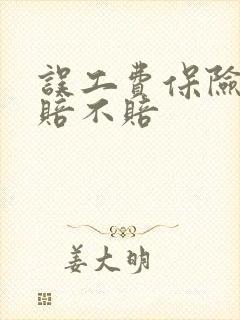 誤工費保險
賠不賠
姜大明